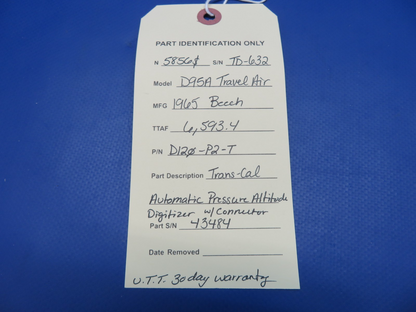 PART IDENTIFICATION ONLY
N 5856$ S/N TD-632
Model D95A Travel Air
MFG 1965 Beech
TTAF 6,593.4
P/N D120-P2-T
Part Description Trans-Cal
Automatic Pressure Altitude
Digitizer w/ Connector
Part S/N 43484
Date Removed
U.T.T. 30 day warranty